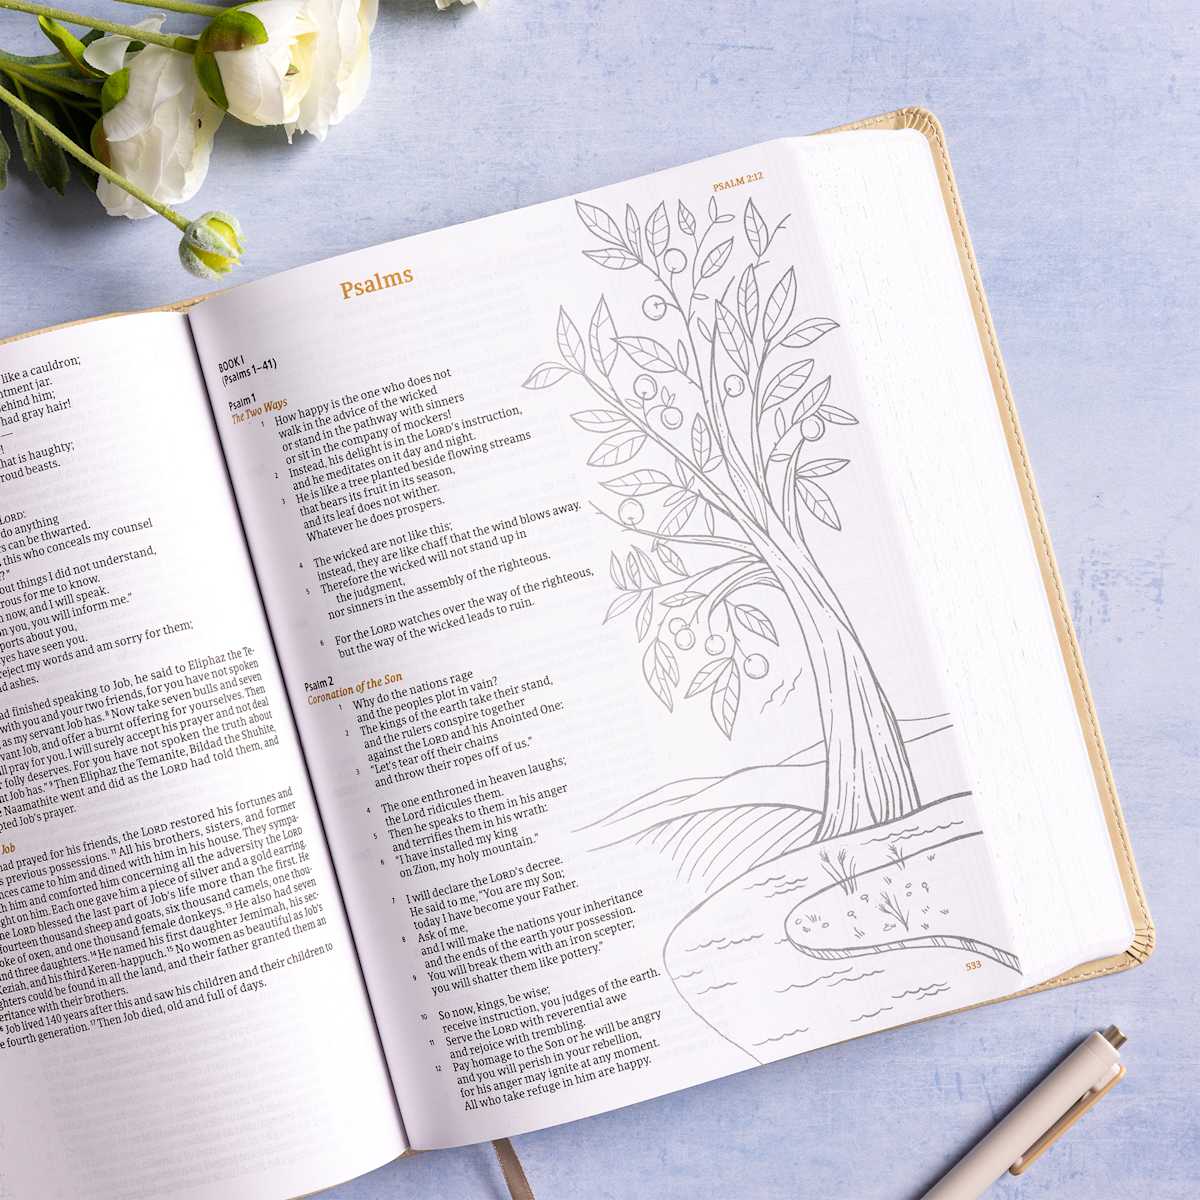 like a cauldron;
tment jar.
ehind him;
had gray hair!
—
!
hat is haughty;
roud beasts.
LORD:
do anything
rs can be thwarted.
this who conceals my counsel
?”
out things I did not understand,
rous for me to know.
n now, and I will speak.
on you, you will inform me.”
ports about you,
yes have seen you.
reject my words and am sorry for them;
nd ashes.
ad finished speaking to Job, he said to Eliphaz the Te-
with you and your two friends, for you have not spoken
, as my servant Job has. 8 Now take seven bulls and seven
vant Job, and offer a burnt offering for yourselves. Then
ll pray for you. I will surely accept his prayer and not deal
folly deserves. For you have not spoken the truth about
nt Job has.” 9 Then Eliphaz the Temanite, Bildad the Shuhite,
Naamathite went and did as the LORD had told them, and
pted Job’s prayer.
Job
had prayed for his friends, the LORD restored his fortunes and
s previous possessions. 11 All his brothers, sisters, and former
nces came to him and dined with him in his house. They sympa-
h him and comforted him concerning all the adversity the LORD
ght on him. Each one gave him a piece of silver and a gold earring.
e LORD blessed the last part of Job’s life more than the first. He
fourteen thousand sheep and goats, six thousand camels, one thou-
oke of oxen, and one thousand female donkeys. 13 He also had seven
nd three daughters. 14 He named his first daughter Jemimah, his sec-
Keziah, and his third Keren-happuch. 15 No women as beautiful as Job’s
ghters could be found in all the land, and their father granted them an
eritance with their brothers.
6 Job lived 140 years after this and saw his children and their children to
e fourth generation. 17 Then Job died, old and full of days.
PSALM 2:12
Psalms
BOOK I
(Psalms 1–41)
Psalm 1
The Two Ways
1 How happy is the one who does not
walk in the advice of the wicked
or stand in the pathway with sinners
or sit in the company of mockers!
2 Instead, his delight is in the LORD’s instruction,
and he meditates on it day and night.
3 He is like a tree planted beside flowing streams
that bears its fruit in its season,
and its leaf does not wither.
Whatever he does prospers.
4 The wicked are not like this;
instead, they are like chaff that the wind blows away.
5 Therefore the wicked will not stand up in
the judgment,
nor sinners in the assembly of the righteous.
6 For the LORD watches over the way of the righteous,
but the way of the wicked leads to ruin.
Psalm 2
Coronation of the Son
1 Why do the nations rage
and the peoples plot in vain?
2 The kings of the earth take their stand,
and the rulers conspire together
against the LORD and his Anointed One:
3 “Let’s tear off their chains
and throw their ropes off of us.”
4 The one enthroned in heaven laughs;
the Lord ridicules them.
5 Then he speaks to them in his anger
and terrifies them in his wrath:
6 “I have installed my king
on Zion, my holy mountain.”
7 I will declare the LORD’s decree.
He said to me, “You are my Son;
today I have become your Father.
8 Ask of me,
and I will make the nations your inheritance
and the ends of the earth your possession.
9 You will break them with an iron scepter;
you will shatter them like pottery.”
10 So now, kings, be wise;
receive instruction, you judges of the earth.
11 Serve the LORD with reverential awe
and rejoice with trembling.
12 Pay homage to the Son or he will be angry
and you will perish in your rebellion,
for his anger may ignite at any moment.
All who take refuge in him are happy.
533